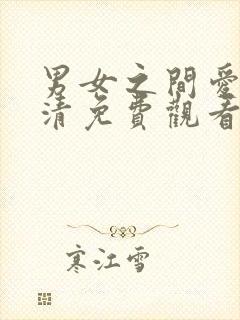 男女之間愛
清免費觀看
寒江雪